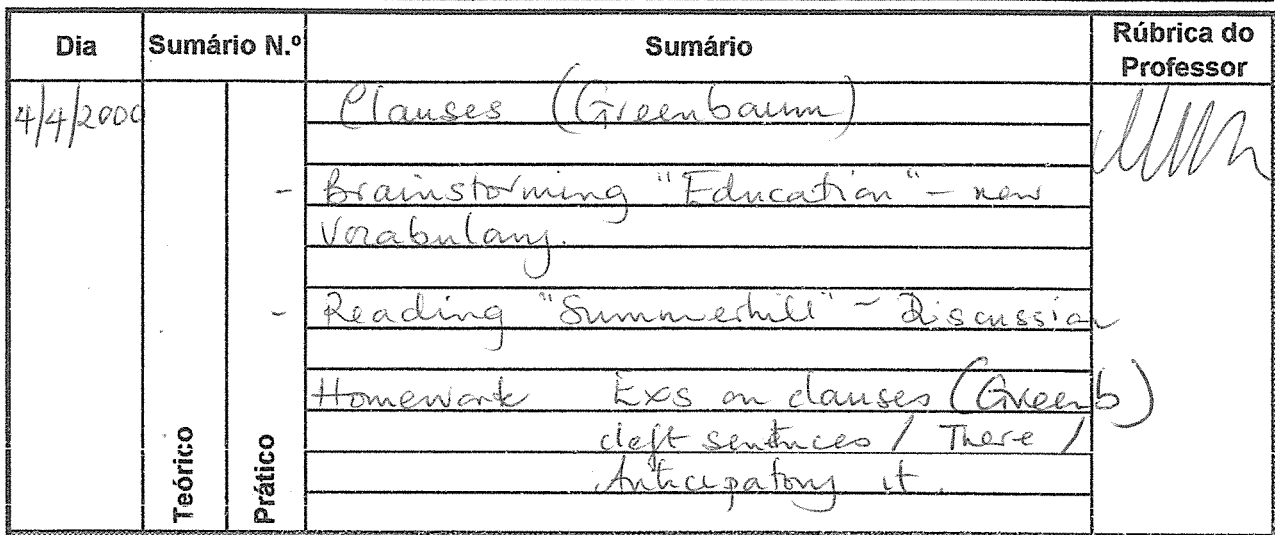 Dia Sumário N.º Sumário Rúbrica do Professor
4/4/2000 Clauses (Greenbaum)
- Brainstorming "Education" - new
Vocabulary.
- Reading "Summerhill" - Discussion
Homework Exs on clauses (Greenb)
cleft sentences / There /
Anticipatory it.
Teórico
Prático